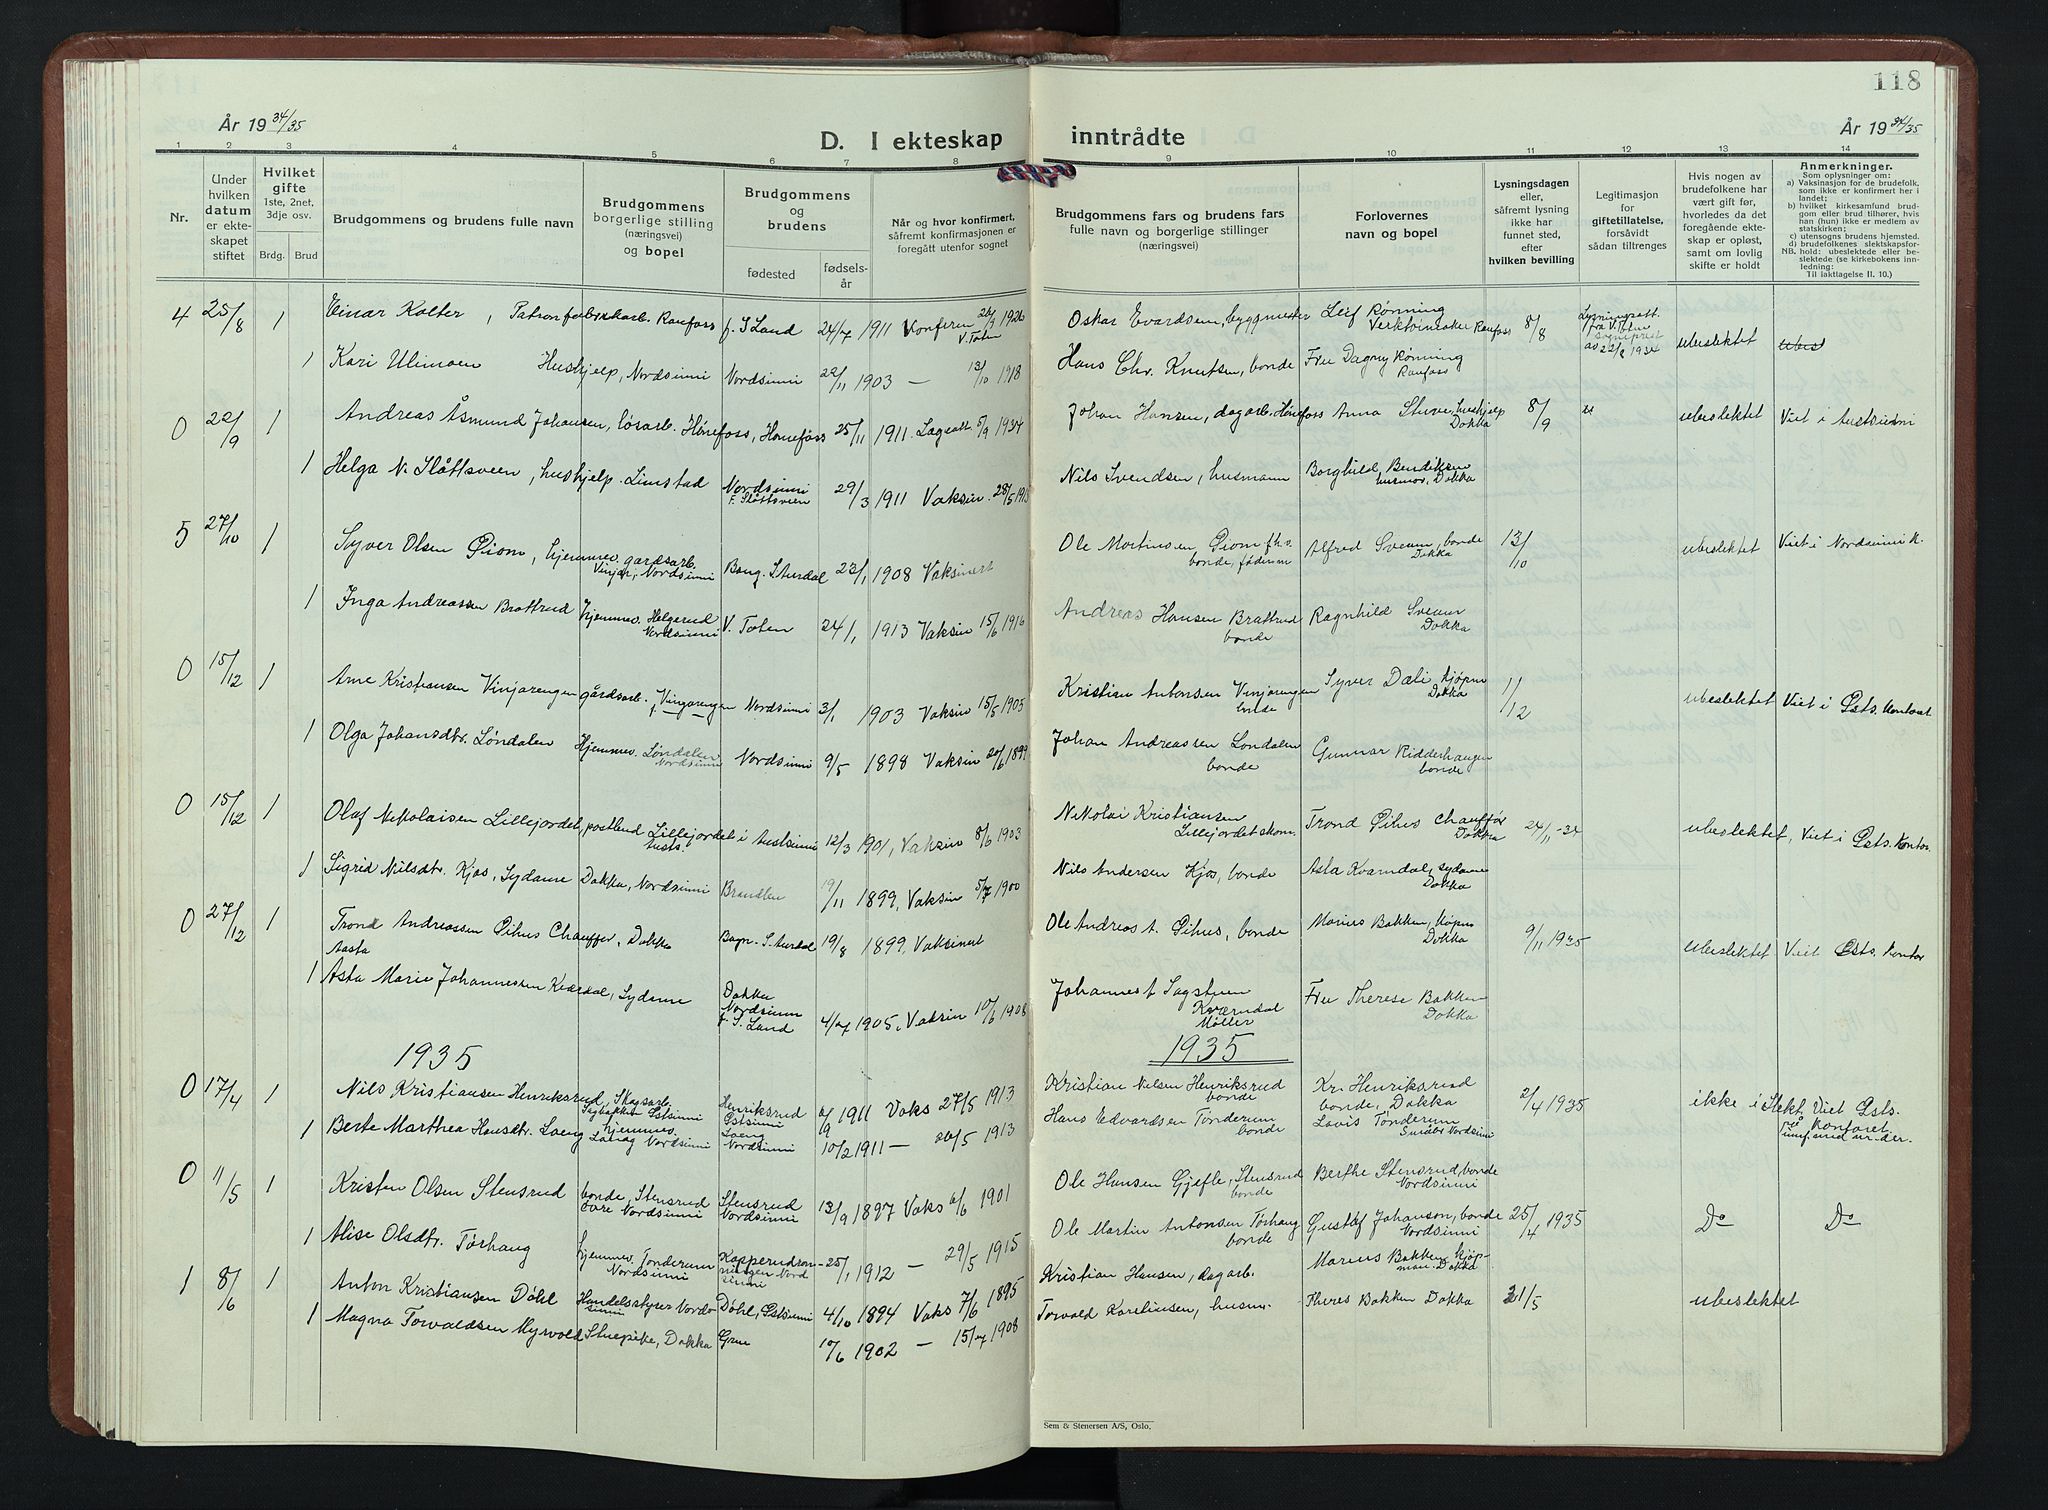 118
År 19 34/35
D. I ekteskap inntrådte
År 19 34/35
1 2 3 4 5 6 7 8 9 10 11 12 13 14
Nr.
Under hvilken datum er ekteskapet stiftet
Hvilket gifte 1ste, 2net. 3dje osv.
Brdg. Brud
Brudgommens og brudens fulle navn
Brudgommens borgerlige stilling (næringsvei) og bopel
Brudgommens og brudens
fødested
fødselsår
Når og hvor konfirmert, såfremt konfirmasjonen er foregått utenfor sognet
Brudgommens fars og brudens fars fulle navn og borgerlige stillinger (næringsvei)
Forlovernes navn og bopel
Lysningsdagen eller, såfremt lysning ikke har funnet sted, efter hvilken bevilling
Legitimasjon for giftetillatelse, forsåvidt sådan tiltrenges
Hvis nogen av brudefolkene har vært gift før, hvorledes da det foregående ekteskap er opløst, samt om lovlig skifte er holdt
Anmerkninger.
Som oplysninger om:
a) Vaksinasjon for de brudefolk, som ikke er konfirmert her i landet:
b) hvilket kirkesamfund brudgom eller brud tilhører, hvis han (hun) ikke er medlem av statskirken:
c) utensogns brudens hjemsted.
d) brudefolkenes slektskapsforhold: ubeslektede eller beslektede (se kirkebokens innledning:
NB. Til iakttagelse II. 10.)
4 25/8 1 Einar Kolter, Patronfabrikarb. Raufoss f. S Land 24/7 1911 Konferm 26/7 1926 V. Toten
Oskar Evardsen, byggmester Leif Rønning Verktöimaker Raufoss 8/8 Lysningsatt. fra V. Toten Sogneprest av 22/8 1934 ubeslektet
1 Kari Ulimoen Hushjelp, Nordsinni Nordsinni 22/11 1903 — 13/10 1918
Hans Chr. Knutsen, bonde Fru Dagny Rønning Raufoss
0 22/9 1 Andreas Åsmund Johansen, løsarb. Hønefoss, Hønefoss 25/11 1911. Lagsatt 5/9 1934
Johan Hansen, dagarb. Hønefoss Anna Stuve, hushjelp Dokka 8/9 " ubeslektet Viet i Austsinni
1 Helga N. Slåttsveen, hushjelp. Limstad Nordsinni f. Slåttsveen 29/3 1911 Vaksin. 28/5 1913
Nils Svendsen, husmann Borghild, Bendiksen husmor, Dokka
5 27/10 1 Syver Olsen Øiom, hjemmev. gardsarb. Nordsinni Bang. S Aurdal 23/1 1908 Vaksinert
Ole Martinsen Øiom f.h.v. bonde, føderm Alfred Sveum, bonde Dokka 13/10 ubeslektet Viet i Nordsinni K.
1 Inga Andreassen Brattrud hjemmev. Helgerud Nordsinni V. Toten 24/1 1913 Vaksin 15/6 1916
Andreas Hansen Brattrud bonde Ragnhild Sveum Dokka
0 15/12 1 Arne Kristiansen Vinjarengen gårdsarb. Vinjarengen Nordsinni 3/1 1903 Vaksin 15/5 1905
Kristian Antonsen Vinjarengen bonde Syver Dæli kjøpm Dokka 1/12 ubeslektet Viet i Østs. Kontoret
1 Olga Johansdtr. Løndalen Hjemmev. Løndalen Nordsinni Nordsinni 9/5 1898 Vaksin 20/6 1899
Johan Andreassen Londalen bonde Gunnar Ridderhaugen bonde
0 15/12 1 Olaf Nikolaisen Lillejordet, postbud Lillejordet i Austsinni Austs. 12/3 1901, Vaksin 8/6 1903
Nikolai Kristiansen Lillejordet skom. Trond Øihus Chauffør Dokka 24/11-34 ubeslektet, Viet i Østs. Kontor.
1 Sigrid Nilsdtr. Kjos, Sydame Dokka, Nordsinni Brandbu 19/11 1899, Vaksin 5/7 1900
Nils Andersen Kjos, bonde Asta Kværndal, sydame Dokka
0 27/12 1 Trond Andreassen Øihus Chauffer, Dokka Bagn. S. Aurdal 19/8 1899, Vaksinert
Ole Andreas A. Øihus, bonde Marius Bakken, kjøpm Dokka 9/11 1935 ubeslektet Viet Østs. Kontor
Aasta
1 Asta Marie Johannessen Kværdal, Sydame Dokka Nordsinni f. S. Land 4/7 1905, Vaksin 10/6 1908
Johannes A Sagstuen Kværndal Møller Fru Therese Bakken Dokka
1935
1935
0 17/4 1 Nils Kristiansen Henriksrud, Skogsarb. Østsinni Henriksrud Østsinni 9 1911 Vaks 27/5 1913
Kristian Nielsen Henriksrud bonde Kr. Henriksrud bonde, Dokka 2/4 1935 ikke i Slekt, Viet Østs. på Kontoret
1 Berte Marthea Hansdtr. Loeng hjemmev. Nordsinni Loeng Nordsinni 10/2 1911 — 26/5 1913
Hans Edvardsen Tønderum bonde Lovis Tønderum Nordsinni
0 11/5 1 Kristen Olsen Stensrud bonde, Stensrud Nordsinni Stensrud Nordsinni 13/9 1897 Vaks 6/6 1901
Ole Hansen Gjefle, Stensrud bonde Berthe Stensrud, bonde Nordsinni
1 Alise Olsdtr. Tørhaug hjemmev. Tonderum Nordsinni 25/1 1912 — 29/5 1915
Ole Martin Antonsen Tørhaug bonde Gustaf Johanson, bonde Nordsinni 25/4 1935 Do Do
1 8/6 1 Anton Kristiansen Døhl Handelsstyrer Nordsinni Døhl, Østsinni 4/10 1894 Vaks 7/6 1895
Kristian Hansen, dagarb. Marius Bakken, kjøpman. Dokka 31/5 ubeslektet
1 Magna Torvaldsen Myrvold Stuepike, Dokka Grue 17/6 1902 — 15/7 1908
Torvald Karelinsen, husm. Theres Bakken Dokka
Sem & Stenersen A/S, Oslo.